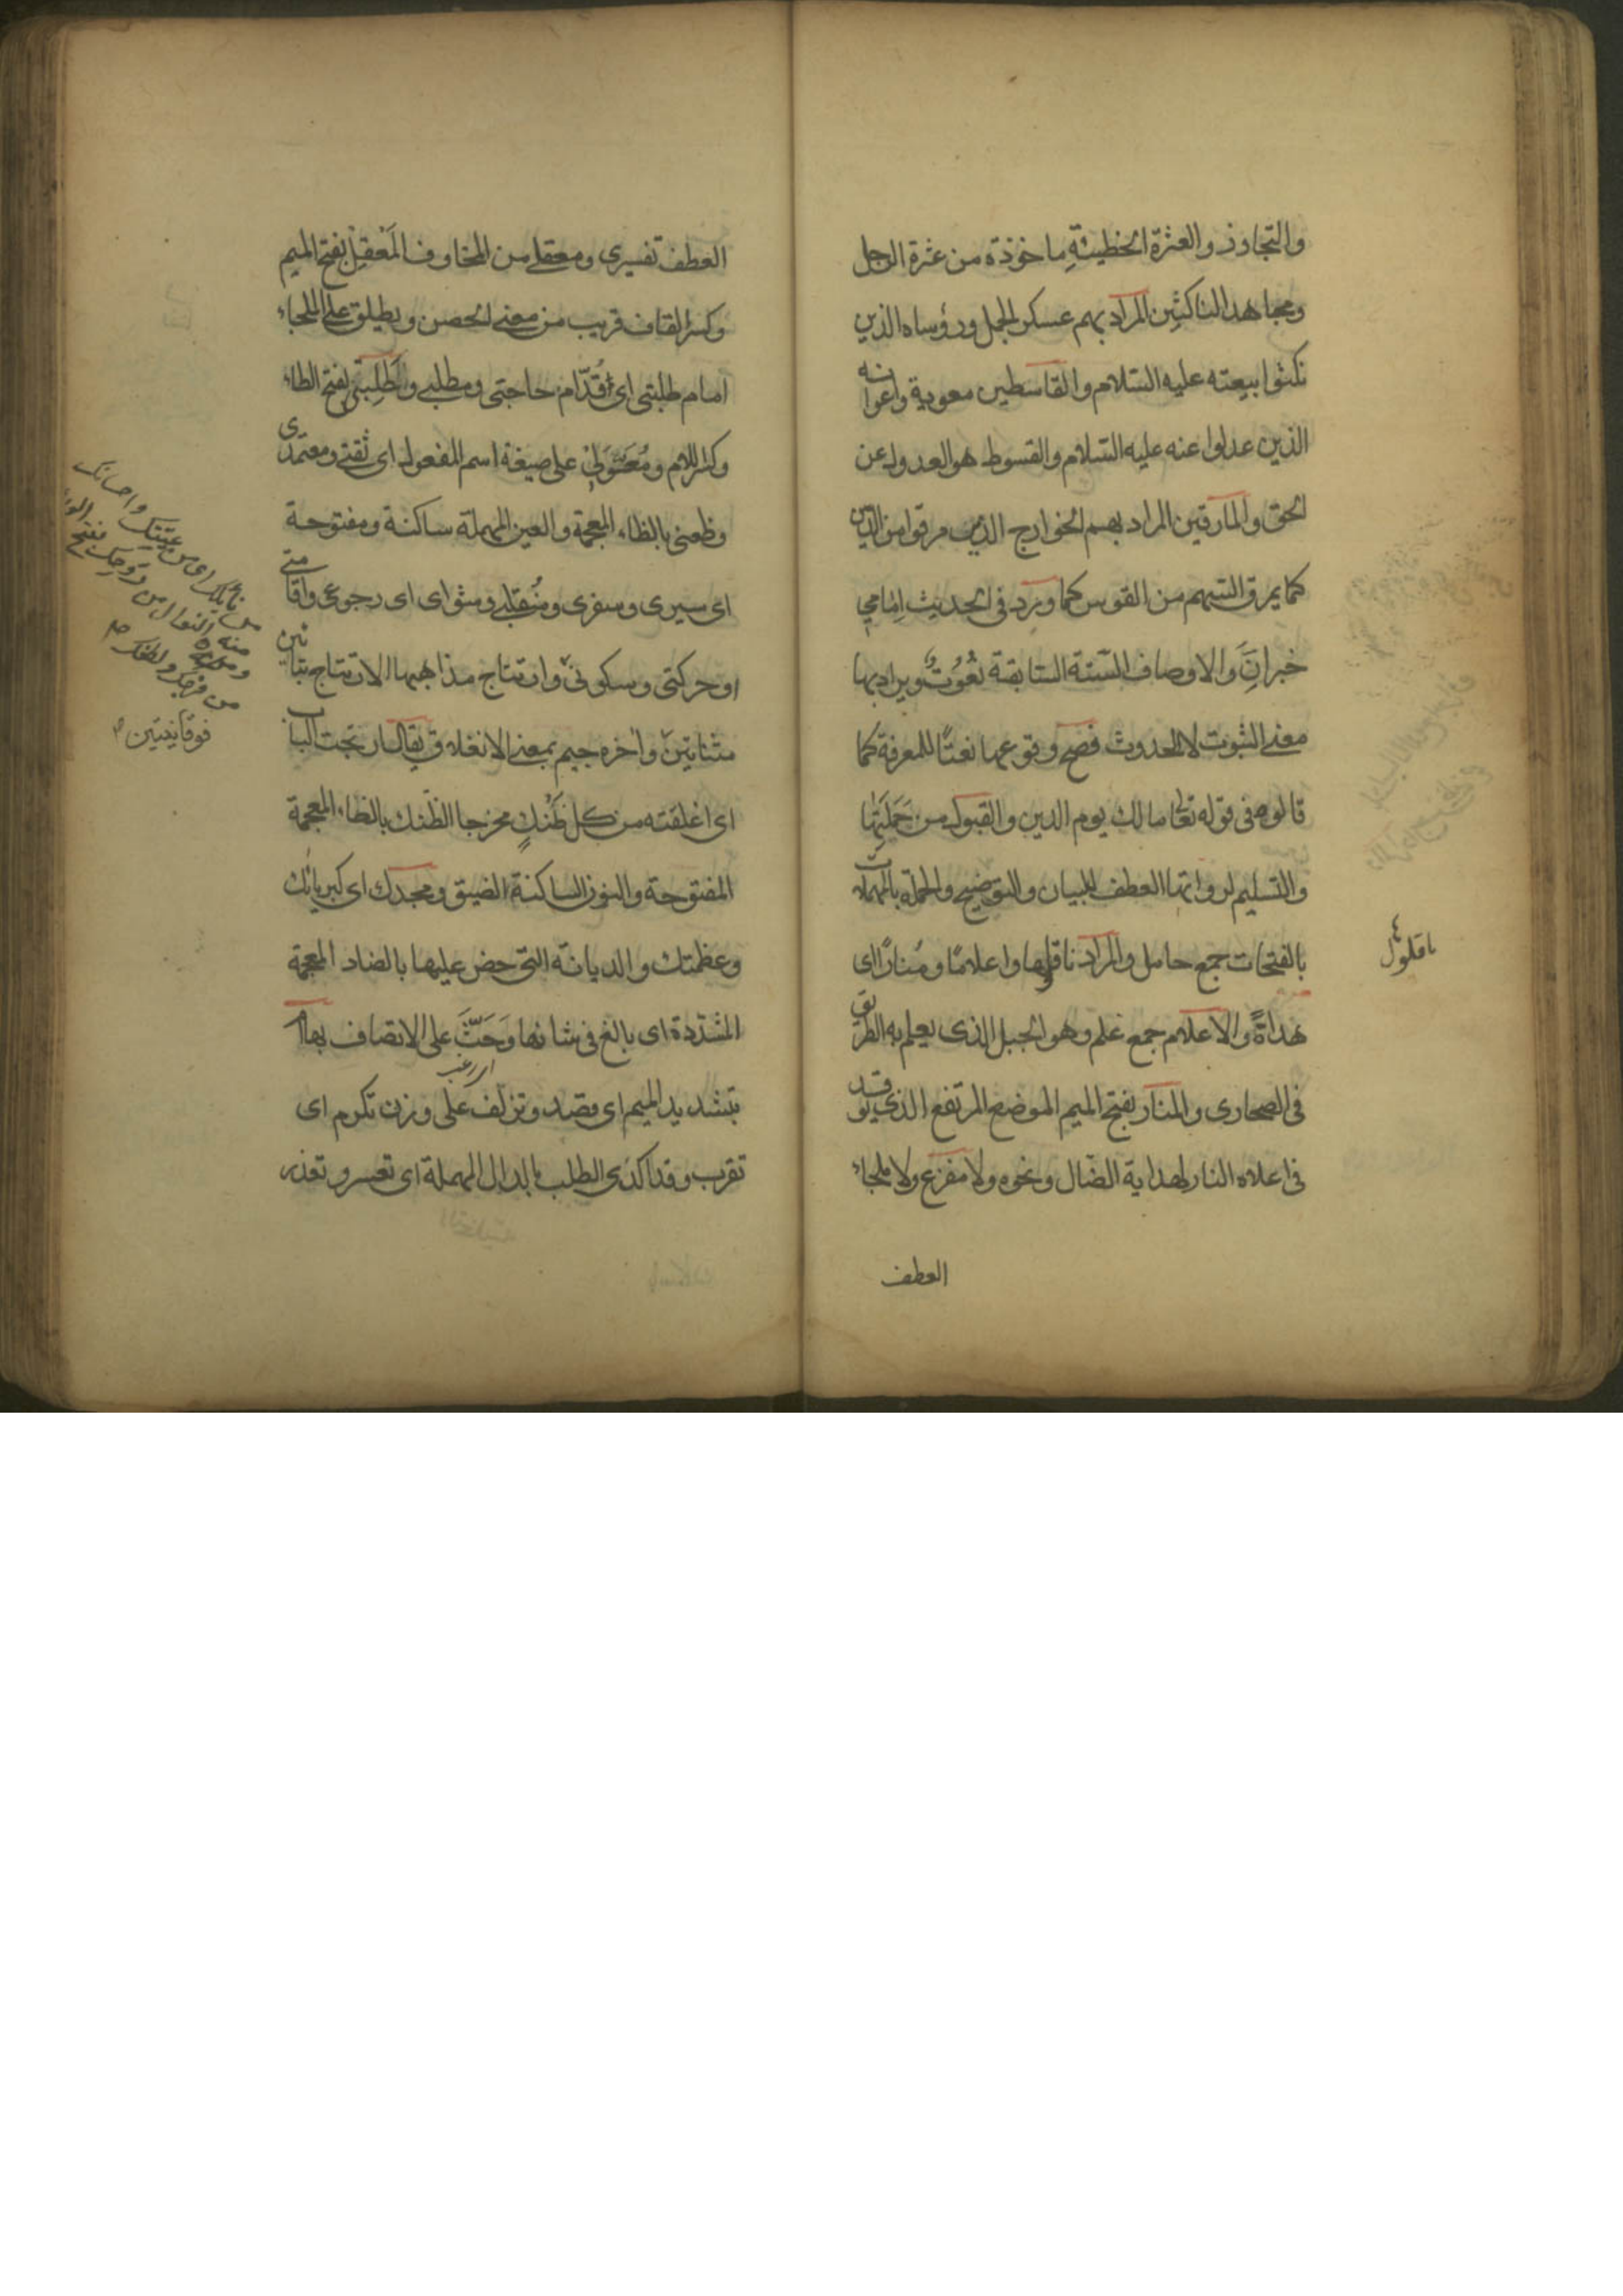 والتجاوز والعثرة الخطيئة ماخوذة من عثرة الرجل
ومجاهد الناكثين المراد بهم عسكر الجمل ورؤساه الذين
نكثوا بيعته عليه السّلام والقاسطين معوية واعوانه
الذين عدلوا عنه عليه السّلام والقسوط هو العدول عن
الحق والمارقين المراد بهم الخوارج الذين مرقوا من الدين
كما يمرق السّهم من القوس كما ورد في الحديث اِمامِي
خبرانَ والاوصاف السّتة السّابقة نُعُوُتٌ ويراد بها
معنى الثبوت لا الحدوث فصح وقوعها نعتًا للمعرفة كما
قالوه في قوله تعالى مالك يوم الدين والقبول من حَمَلَتِها
والتسليم لرواتها العطف للبيان والتوضيح والحملة بالمهملات
بالفتحات جمع حامل والمراد ناقلوها واعلامًا ومَنارًا اى
هُداةً والاعلام جمع علم وهو الجبل الذى يعلم به الطريق
فى الصحارى والمنار بفتح الميم الموضع المرتفع الذى يوقد
فى اعلاه النار لهداية الضّال ونحوه ولا مفزع ولا ملجاء
العطف
ناقلوا
العطف تفسيرى ومعقلى من المخاوف المَعْقِل بفتح الميم
وكسر القاف قريب من معنى الحصن ويطلق على الملجاء
امام طلبتى اى قُدّام حاجتى ومطلبى والطَلِبَتى بفتح الطاء
وكسر اللام ومُعَتَوَلى على صيغة اسم المفعول اى ثقتى ومعتمدى
وظعنى بالظاء المعجمة والعين المهملة ساكنة ومفتوحة
اى سيرى وسفرى ومُنقلبى ومثواى اى رجوعى واقامتى
او حركتى وسكونى وارتتاج مذاهبها الارتتاج بتائين
مثناتين واخره جيم بمعنى الانغلاق يقال ارتجت الباب
اى اغلقته من كل ظَنْكٍ مخرجا الظّنك بالظاء المعجمة
المفتوحة والنون الساكنة الضيق ومجدك اى كبريائك
وعظمتك والديانة التى حض عليها بالضاد المعجمة
المشدّدة اى بالغ فى شانها وَحَثَّ على الاتصاف بها امّ
بتشديد الميم اى قصد وتزلّف على وزن تكرم اى
تقرب وقد اكدى الطلب بالدال المهملة اى تعسر وتعذر
فوقانيتين